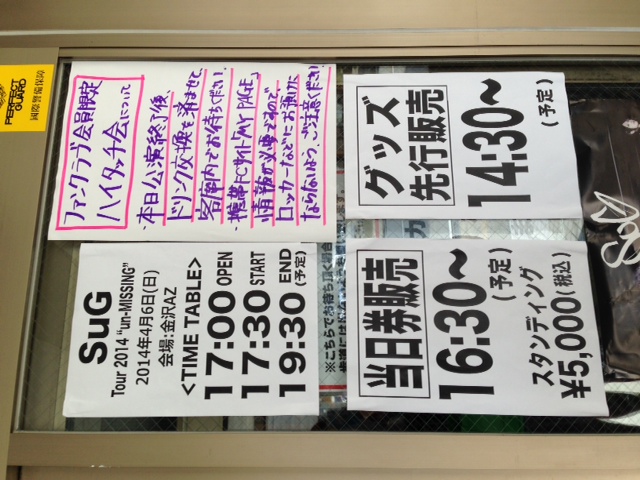 PERFECT
GUARD
國際警備保障
ファンクラブ会員限定
ハイタッチ会について
・本日公演終了後
ドリンク交換も済ませて、
客席内でお待ちください。
・携帯FCサイト「MY PAGE」
情報が必要ですので
ロッカーなどにお預けに
ならないよう、ご注意ください。
グッズ
先行販売
14:30〜
(予定)
SuG
Tour 2014 "un-MISSING"
2014年4月6日(日)
会場:金沢AZ
<TIME TABLE>
17:00 OPEN
17:30 START
19:30 END
(予定)
※こちらでお待ち頂く場合
当日券販売
16:30〜
(予定)
スタンディング
¥5,000(税込)
SuG